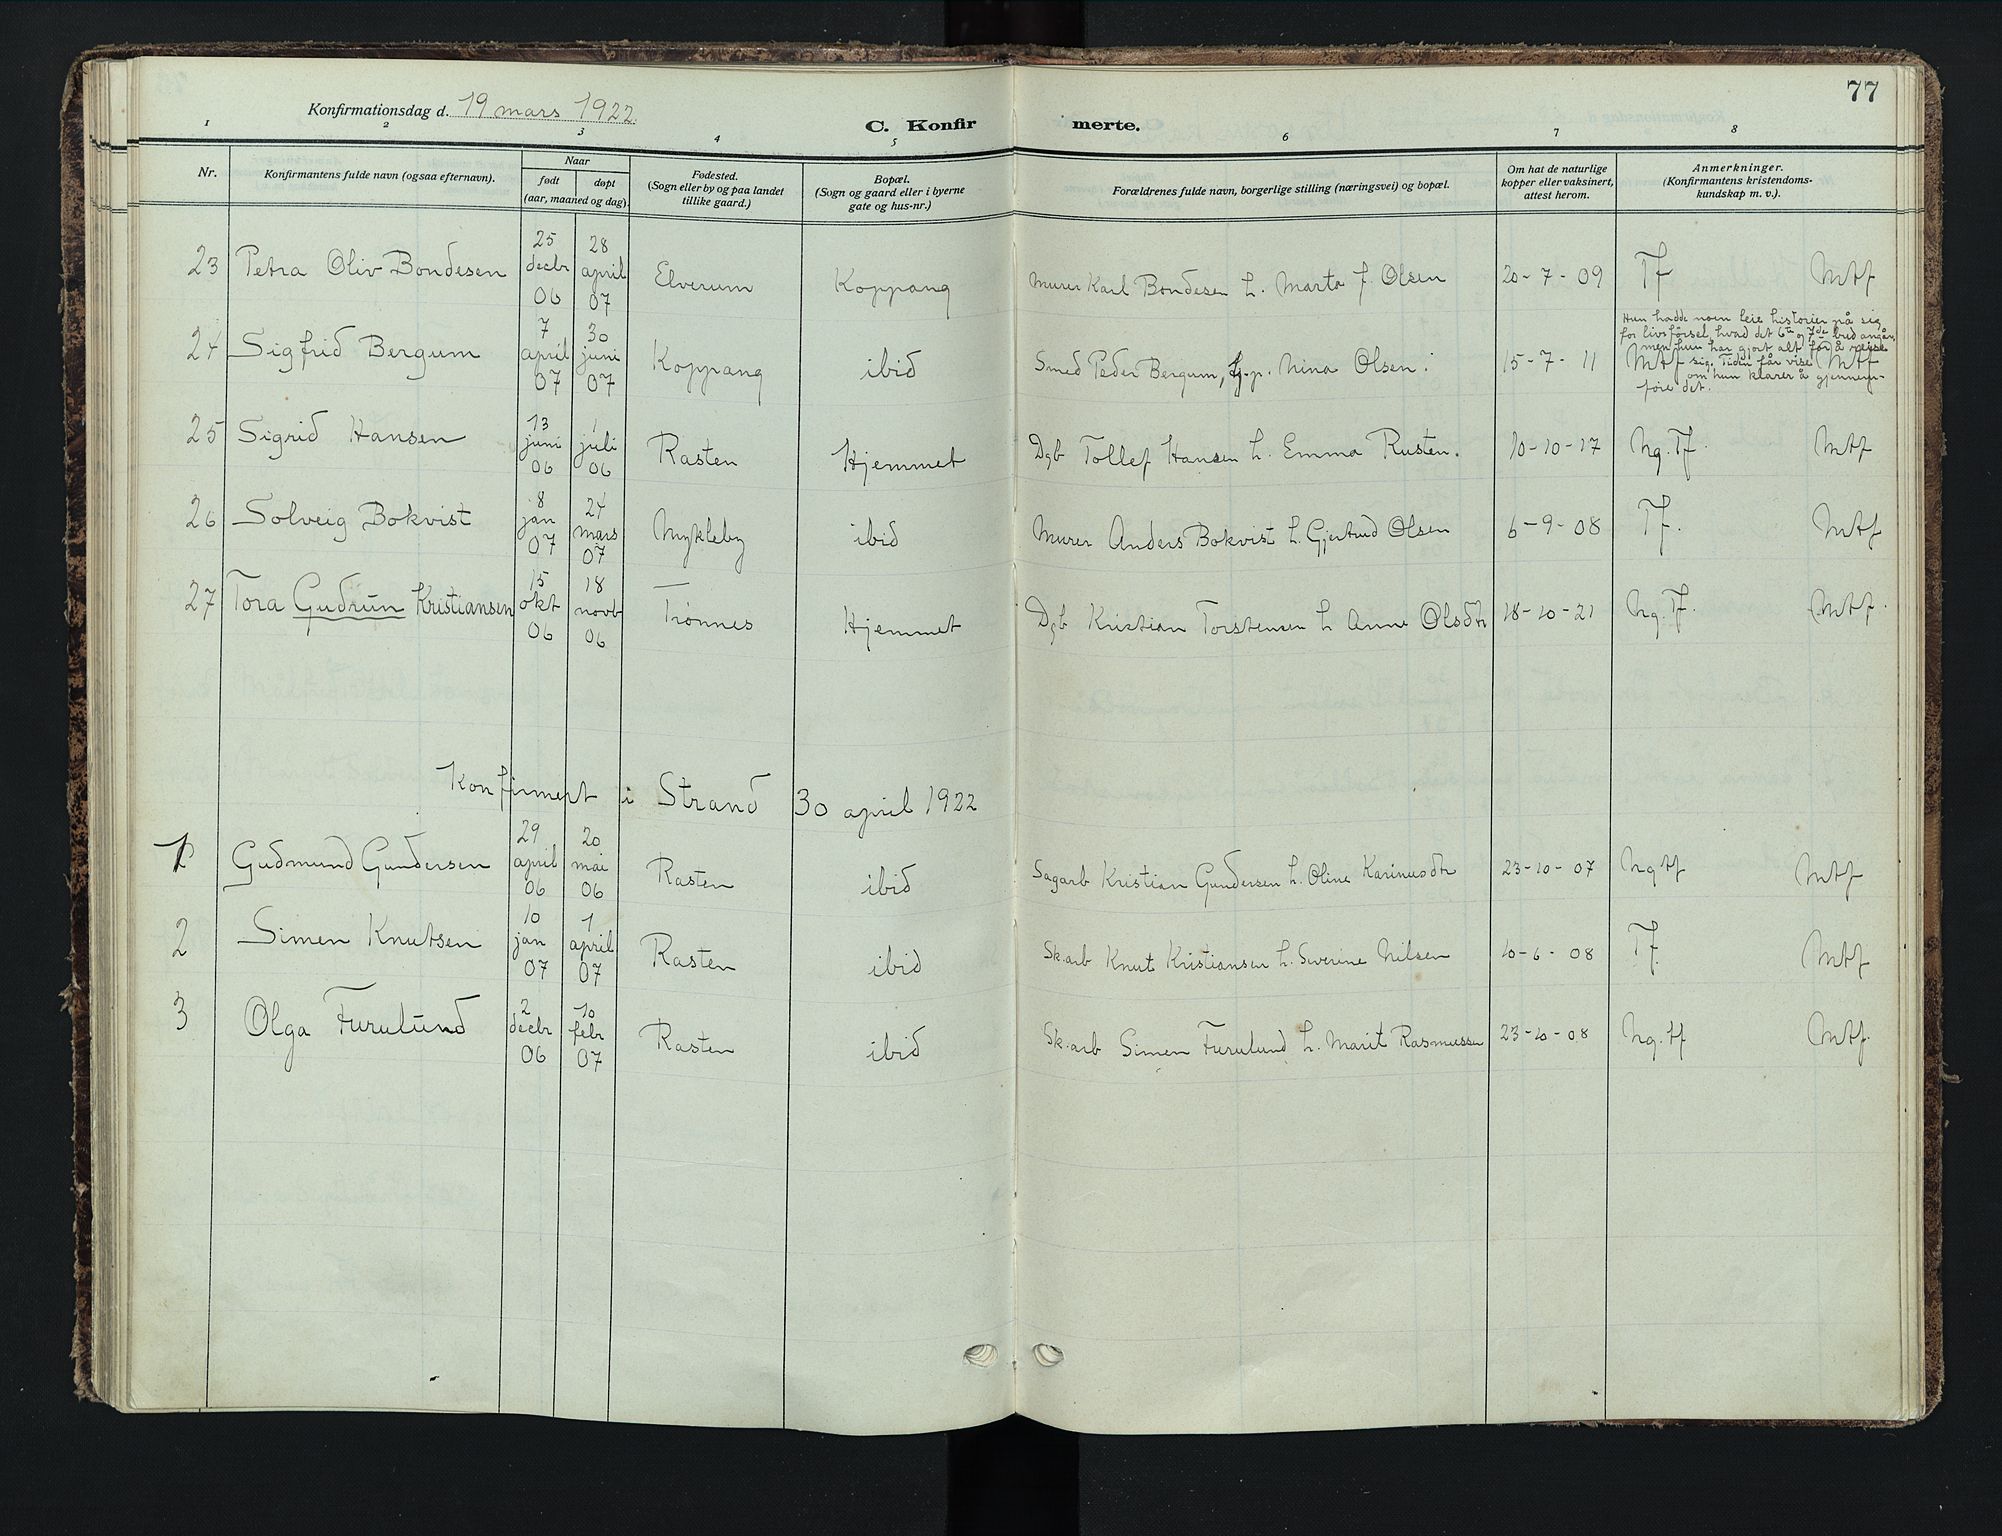 77
Konfirmationsdag d. 19 mars 1922.
C. Konfirmerte.
1 2 3 4 5 6 7 8
Nr. Konfirmantens fulde navn (ogsaa efternavn). Naar født døpt (aar, maaned og dag). Fødested. (Sogn eller by og paa landet tillike gaard.) Bopæl. (Sogn og gaard eller i byerne gate og hus-nr.) Forældrenes fulde navn, borgerlige stilling (næringsvei) og bopæl. Om hat de naturlige kopper eller vaksinert, attest herom. Anmerkninger. (Konfirmantens kristendomskundskap m. v.).
23 Petra Oliv Bondesen 25 decbr 06 28 april 07 Elverum Koppang Murer Karl Bondesen h. Marta f. Olsen 20-7-09 Tf Mtf
24 Sigfrid Bergum 7 april 07 30 juni 07 Koppang ibid Smed Peder Bergum, hj.p. Nina Olsen. 15-7-11 Mtf Mtf
Hun hadde noen leie historier på sig
for livsførsel hvad det 6te og 7de bud angår,
men hun har gjort alt for å reise
sig. Tiden får vise
om hun klarer å gjennem-
føre det.
25 Sigrid Hansen 13 juni 06 1 juli 06 Rasten Hjemmet Dgb Tollef Hansen h. Emma Rusten. 10-10-17 Ng. Tf. Mtf
26 Solveig Bokvist 8 jan 07 24 mars 07 Mykleby ibid Murer Anders Bokvist h. Gjertrud Olsen 6-9-08 Tf. Mtf
27 Tora Gudrun Kristiansen 15 okt 06 18 novb 06 Trønnes Hjemmet Dgb Kristian Torstensen h Anne Olsdtr 18-10-21 Ng. Tf. Mtf.
Konfirmert i Strand 30 april 1922
1 Gudmund Gundersen 29 april 06 20 mai 06 Rasten ibid Sagarb Kristian Gundersen h. Oline Karinusdtr 23-10-07 Ng tf Mtf
2 Simen Knutsen 10 jan 07 1 april 07 Rasten ibid Sk.arb Knut Kristiansen h. Severine Nilsen 10-6-08 Tf. Mtf
3 Olga Furulund 2 decbr 06 10 febr 07 Rasten ibid Sk.arb Simen Furulund h. Marit Rasmussen 23-10-08 Ng. tf Mtf.